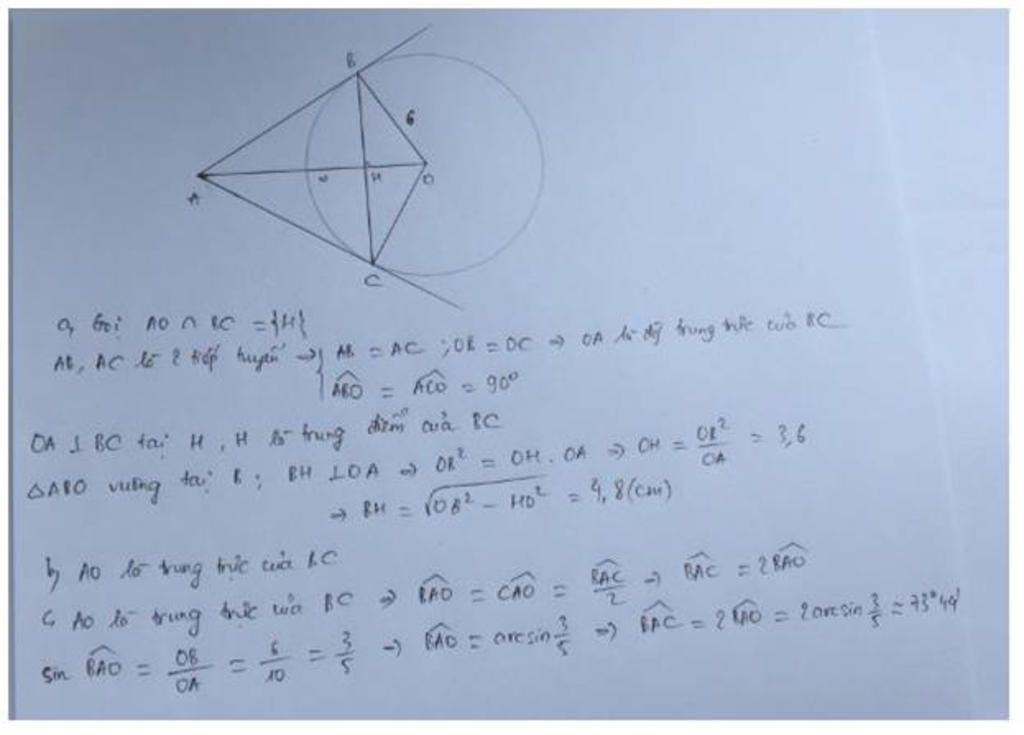 B
6
A
H
O
C
a, Gọi AO ∩ BC = {H}
AB, AC là 2 tiếp tuyến → { AB = AC ; OB = OC → OA là đg trung trực của BC
∠ABO = ∠ACO = 90°
OA ⊥ BC tại H , H là trung điểm của BC
△ABO vuông tại B ; BH ⊥ OA → OB² = OH . OA → OH = OB²/OA = 3,6
→ BH = √(OB² − HO²) = 4,8 (cm)
b, AO là trung trực của BC
c, AO là trung trực của BC → ∠BAO = ∠CAO = ∠BAC/2 → ∠BAC = 2∠BAO
sin ∠BAO = OB/OA = 6/10 = 3/5 → ∠BAO = arcsin 3/5 → ∠BAC = 2∠BAO = 2arcsin 3/5 ≈ 73°44'